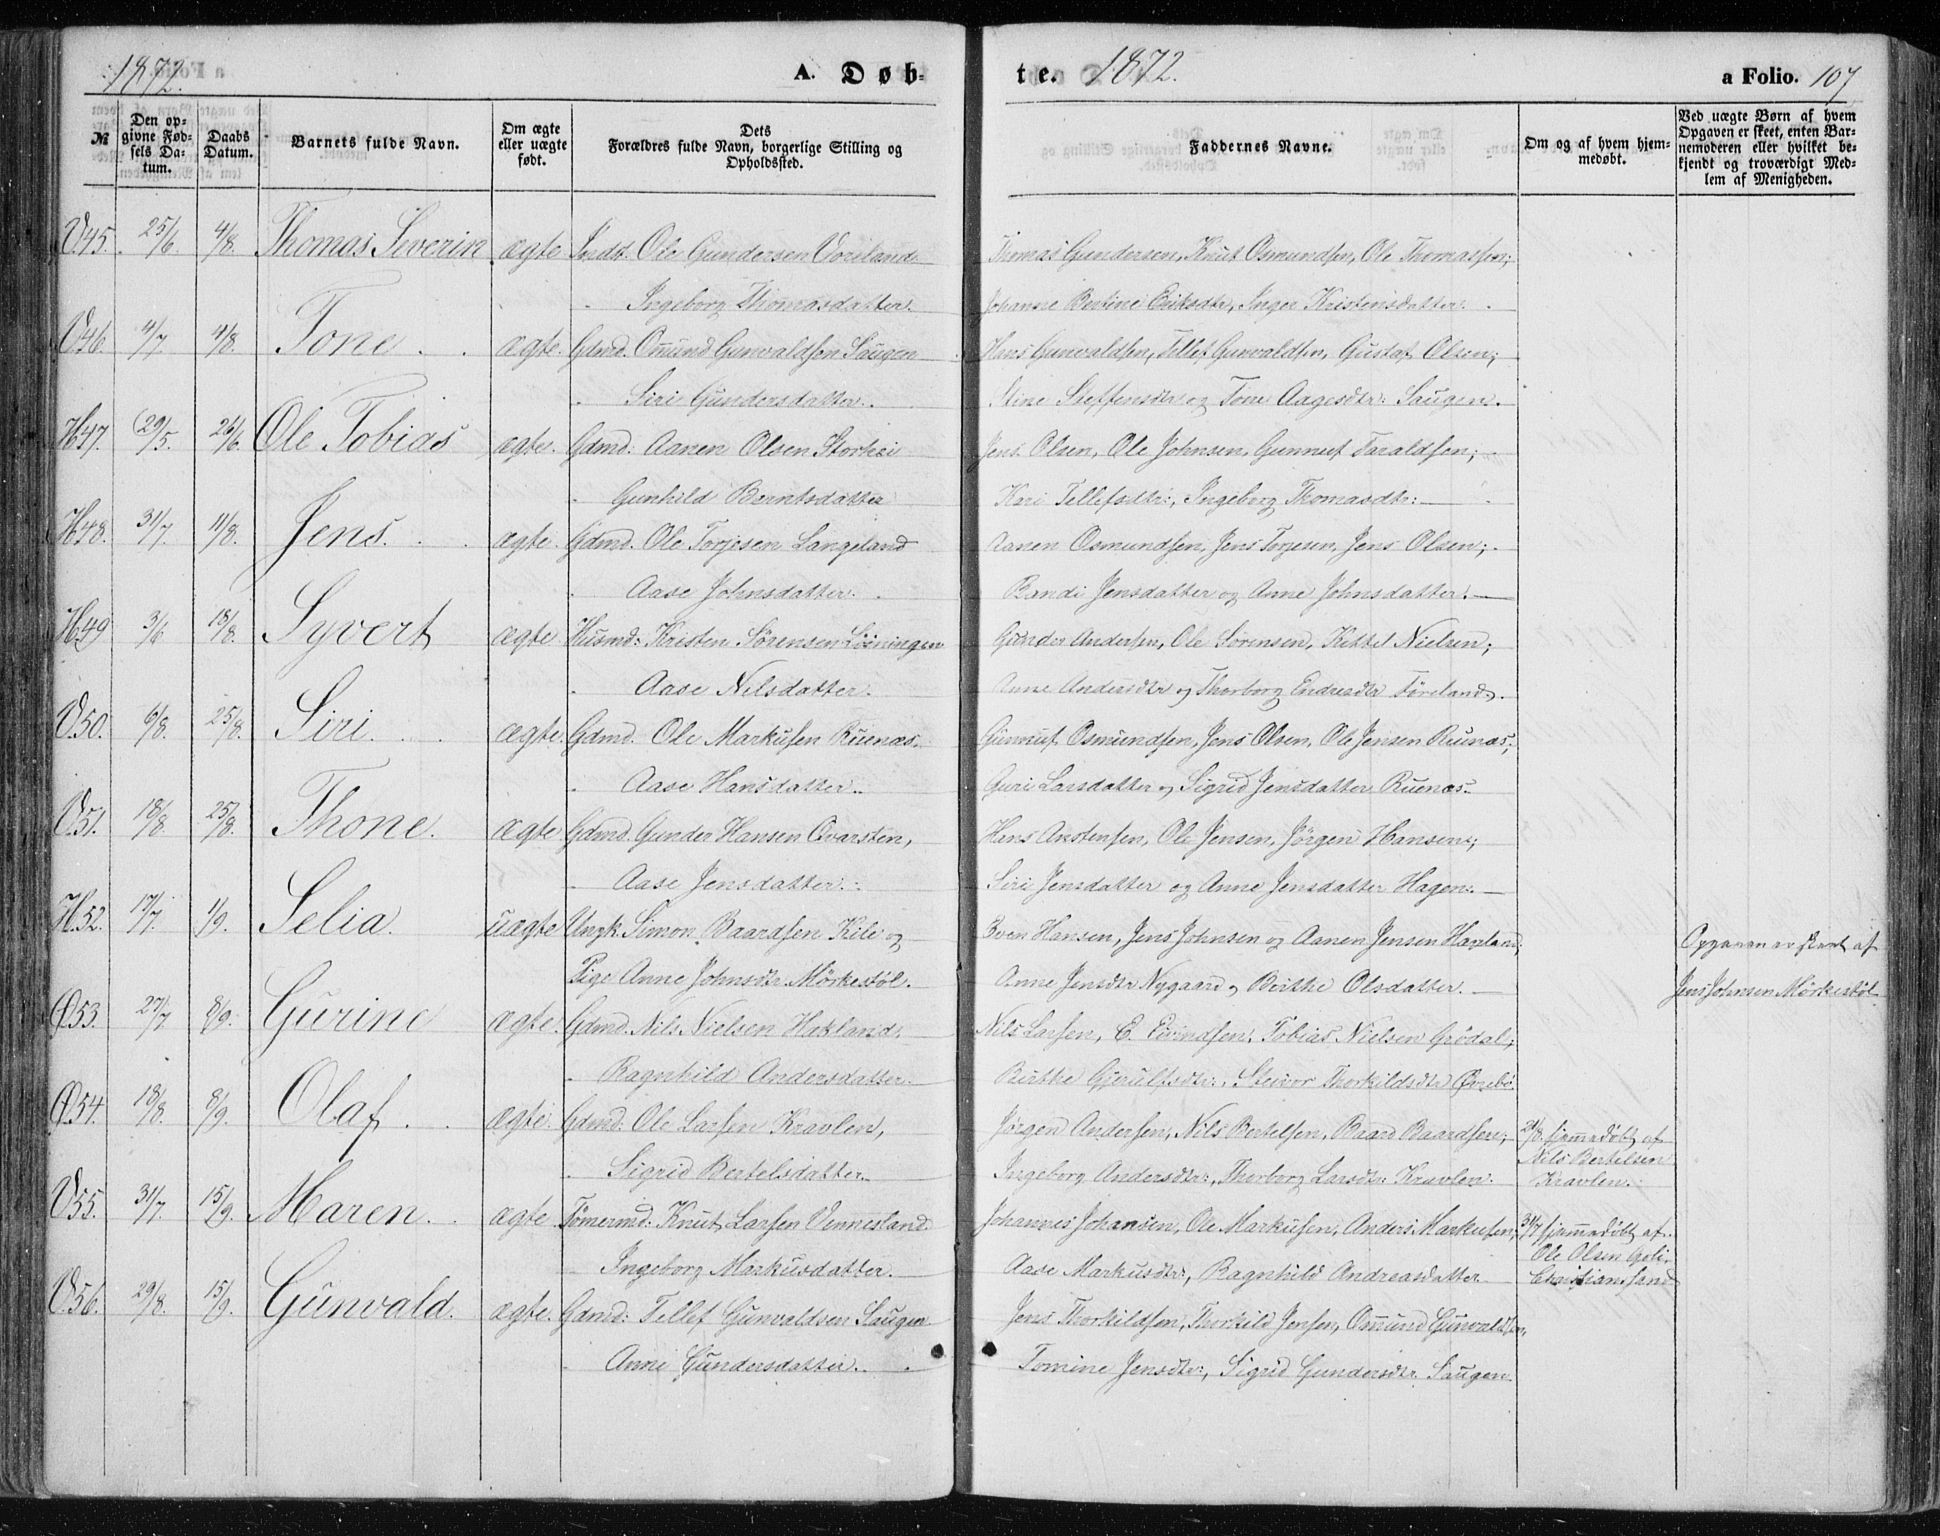 1872. A. Døb- te. 1872. a Folio. 107
№ Den opgivne Fødsels Datum. Daabs Datum. Barnets fulde Navn. Om ægte eller uægte født. Dets Forældres fulde Navn, borgerlige Stilling og Opholdssted. Faddernes Navne. Om og af hvem hjemmedøbt. Ved uægte Børn af hvem Opgaven er skeet, enten Barnemoderen eller hvilket bekjendt og troværdigt Medlem af Menigheden.
V.45. 25/6. 4/8. Thomas Severin ægte Indst. Ole Gundersen Voreland Thomas Gundersen, Knut Osmundsen, Ole Thomassen;
Ingeborg Thomasdatter. Johanne Bertine Eriksdtr, Inger Kristensdatter.
V46. 4/7 4/8. Tone ægte. Gdmd. Omund Gunvaldsen Saugen Hans Gunvaldsen, Tellef Gunvaldsen, Gustaf Olsen;
Siri Gundersdatter. Stine Steffensdtr og Tone Aagesdtr: Saugen.
H47. 29/5. 26/6. Ole Tobias ægte. Gdmd: Aanen Olsen Storhei Jens Olsen, Ole Johnsen, Gunnuf Taraldsen;
Gunhild Berntsdatter Kari Tellefsdtr:, Ingeborg Thomasdtr:
H48. 31/7. 11/8. Jens. ægte Gdmd. Ole Torjesen Langeland Aanen Osmundsen, Jens Torjesen, Jens Olsen;
Aase Johnsdatter. Randi Jensdatter og Anne Johnsdatter.
H49 3/6 18/8. Syvert ægte Husmd: Kristen Sørensen Løiningen Gunder Andersen, Ole Sørensen, Kittel Nielsen;
Aase Nilsdatter. Anne Andersdtr og Thorborg Endresdtr Føreland.
V.50. 6/8. 25/8. Siri. ægte. Gdmd. Ole Markusen Ruenæs. Gunnuf Osmundsen, Jens Olsen, Ole Jensen Ruenæs;
Aase Hansdatter. Guri Larsdatter og Sigrid Jensdatter Ruenæs.
V.51. 18/8. 25/8. Thone. ægte Gdmd. Gunder Hansen Qvarsten, Hans Anstensen, Ole Jensen, Jørgen Hansen;
Aase Jensdatter. Siri Jensdatter og Anne Jensdatter Hagen.
H.52. 17/7. 1/9. Selia. uægte Ungk. Simon Baardsen Kile og Even Hansen, Jens Johnsen og Aanen Jensen Haaland; Opgaven er skeet af
Pige Anne Johnsdtr Mørkestøl. Anne Jensdtr Nygaard og Birthe Olsdatter. Jens Johnsen Mørkestøl
Ø.53. 27/7 8/9. Gurine ægte. Gdmd. Nils Nielsen Hokland. Nils Larsen, E. Evindsen, Tobias Nielsen Grødal;
Ragnhild Andersdatter. Birthe Gjerulfsdtr:, Steinor Thorkildsdtr Øvrebø.
Ø.54. 18/8. 8/9. Olaf. ægte. Gdmd: Ole Larsen Kravlen, Jørgen Andersen, Nils Bertelsen, Baard Baardsen; 21/8. hjemmedøbt af
Nils Bertelsen
Sigrid Bertelsdatter. Ingeborg Andersdtr:, Thorborg Larsdtr: Kravlen. Kravlen.
V55. 31/7. 15/9. Maren. ægte Tømermd: Knut Larsen Vennesland Johannes Johansen, Ole Markusen, Anders Markusen; 31/7 hjemmedøbt af
Ole Olsen Goli,
Ingeborg Markusdatter. Aase Markusdtr:, Ragnhild Andreasdatter Christiansand
V.56. 29/8. 15/9. Gunvald. ægte. Gdmd: Tellef Gunvaldsen Saugen Jens Thorkildsen, Thorkild Jensen, Osmund Gunvaldsen,
Anne Gundersdatter. Tomine Jensdtr:, Sigrid Gundersdtr Saugen.